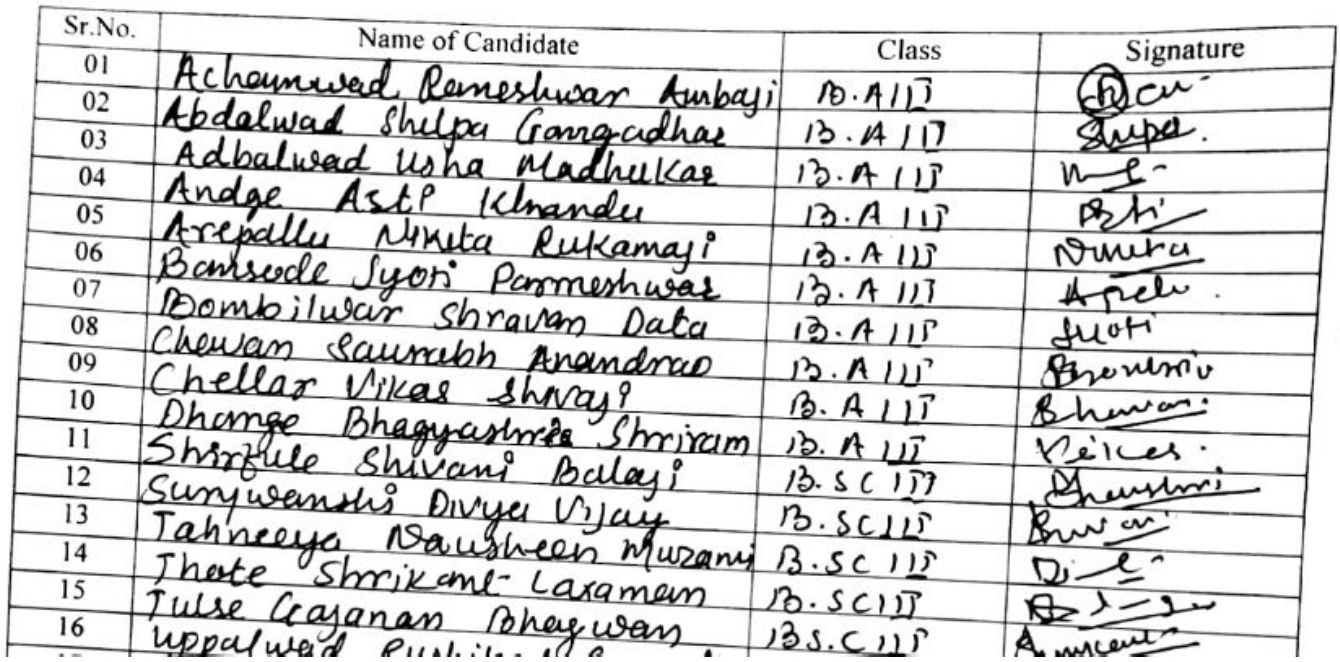 Sr.No. Name of Candidate Class Signature
01 Rameshwar Ambaji B.A III
02 Abdalwad Shilpa Gangadhar B.A III Shilpa.
03 Adbalwad Usha Madhukar B.A III
04 Andge Asti Khandu B.A III
05 Arepallu Nikita Rukamaji B.A III
06 Bansode Jyoti Parmeshwar B.A III
07 Bombilwar Shravan Data B.A III Jyoti
08 Chawan Saurabh Anandrao B.A III
09 Chellar Vikas Shivaji B.A III
10 Dhange Bhagyashree Shriram B.A III
11 Shirfule Shivani Balaji B.SC III
12 Suryawanshi Divya Vijay B.SC III
13 Tahneeya Nausheen B.SC III
14 Thote Shrikant Laxaman B.SC III
15 Tulse Gajanan Bhagwan BS.C III
16 uppalwad